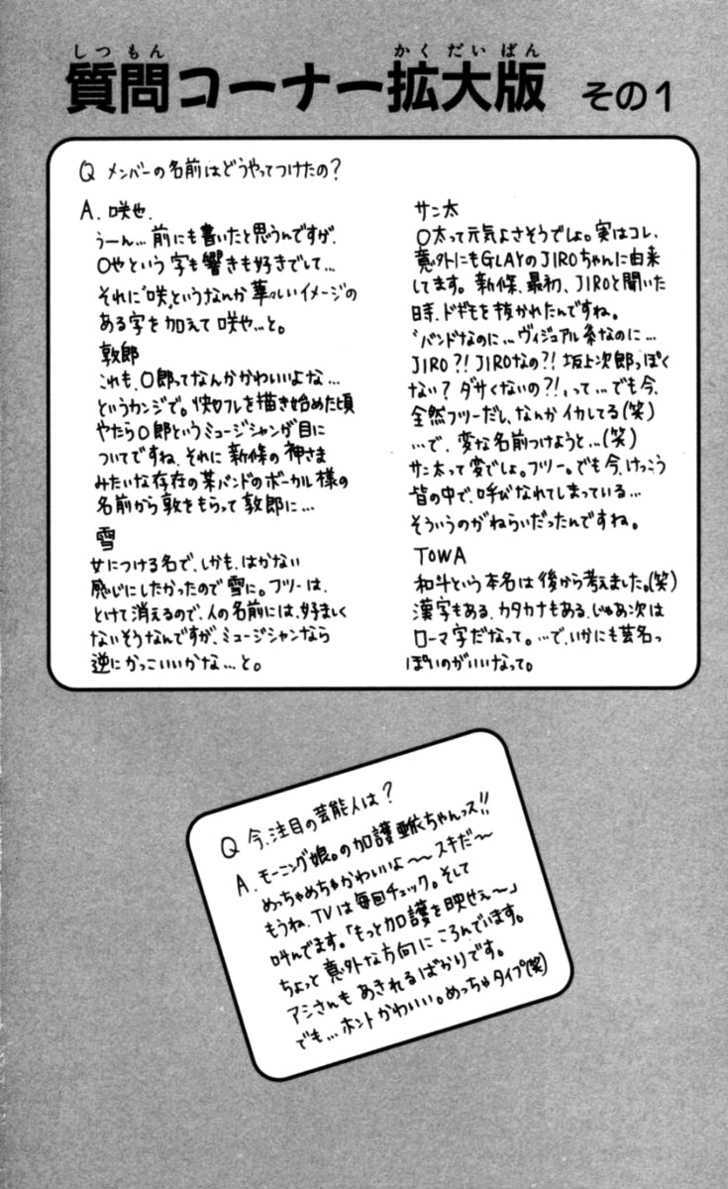 しつもん かくだいばん
質問コーナー拡大版 その1
Q メンバーの名前はどうやってつけたの?
A. 咲也.
うーん…前にも書いたと思うんですが、
○やという字も響きも好きでして…
それに"咲"というなんか華々しいイメージの
ある字を加えて咲也…と。
敦郎
これも、○郎ってなんかかわいいよな…
というカンジで。快フレを描き始めた頃
やたら○郎というミュージシャンが目に
ついてですね、それに新條の神さま
みたいな存在の某バンドのボーカル様の
名前から敦をもらって敦郎に…
雪
女につける名で、しかも、はかない
感じにしたかったので雪に。フツーは、
とけて消えるので、人の名前には、好ましく
ないそうなんですが、ミュージシャンなら
逆にかっこいいかな…と。
サン太
○太って元気よさそうでしょ。実はコレ、
意外にもGLAYのJIROちゃんに由来
してます。新條、最初、JIROと聞いた
時、ドギモを抜かれたんですね。
"バンドなのに…ヴィジュアル系なのに…
JIRO?!JIROなの?!坂上次郎っぽく
ない?ダサくないの?!"って…でも今、
全然フツーだし、なんかイカしてる(笑)
…で、変な名前つけようと…(笑)
サン太って変でしょ。フツー。でも今、けっこう
皆の中で、呼びなれてしまっている…
そういうのがねらいだったんですね。
TOWA
和斗という本名は後から考えました。(笑)
漢字もある、カタカナもある、じゃあ次は
ローマ字だなって。…で、いかにも芸名っ
ぽいのがいいなって。
Q 今、注目の芸能人は?
A. モーニング娘。の加護亜依ちゃんっス!!
めっちゃめちゃかわいいよ〜〜スキだ〜
もうね、TVは毎回チェック。そして
叫んでます。「もっと加護を映せぇ〜」
ちょっと意外な方向にころんでいます。
アシさんもあきれるばかりです。
でも…ホントかわいい。めっちゃタイプ(笑)